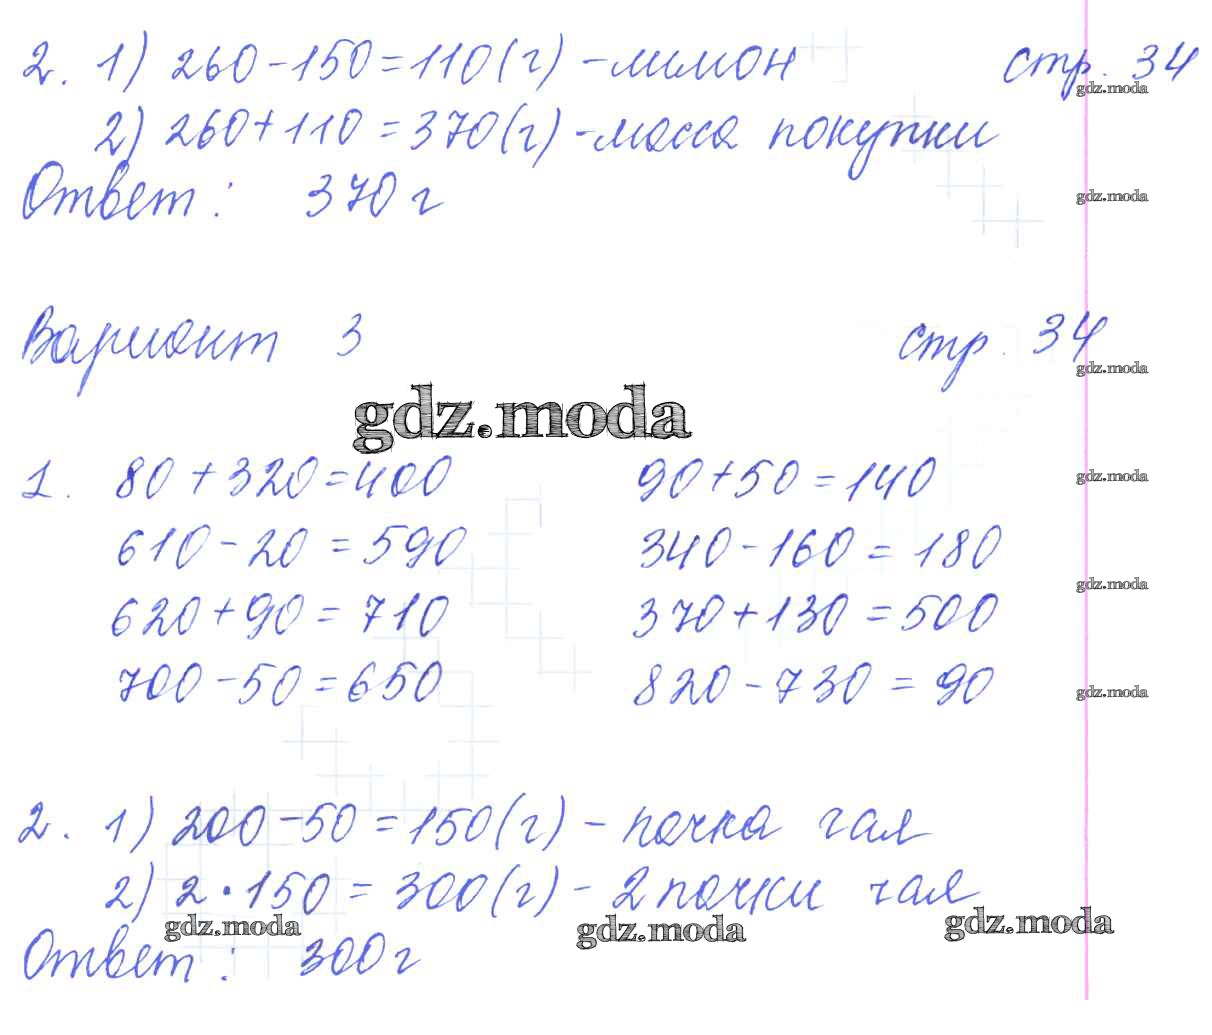 2. 1) 260 - 150 = 110 (г) - лимон стр. 34
gdz.moda
2) 260 + 110 = 370 (г) - масса покупки
Ответ: 370 г
gdz.moda
Вариант 3 стр. 34
gdz.moda
gdz.moda
1. 80 + 320 = 400 90 + 50 = 140
gdz.moda
610 - 20 = 590 340 - 160 = 180
gdz.moda
620 + 90 = 710 370 + 130 = 500
700 - 50 = 650 820 - 730 = 90
gdz.moda
2. 1) 200 - 50 = 150 (г) - пачка чая
2) 2 · 150 = 300 (г) - 2 пачки чая
gdz.moda gdz.moda gdz.moda
Ответ: 300 г